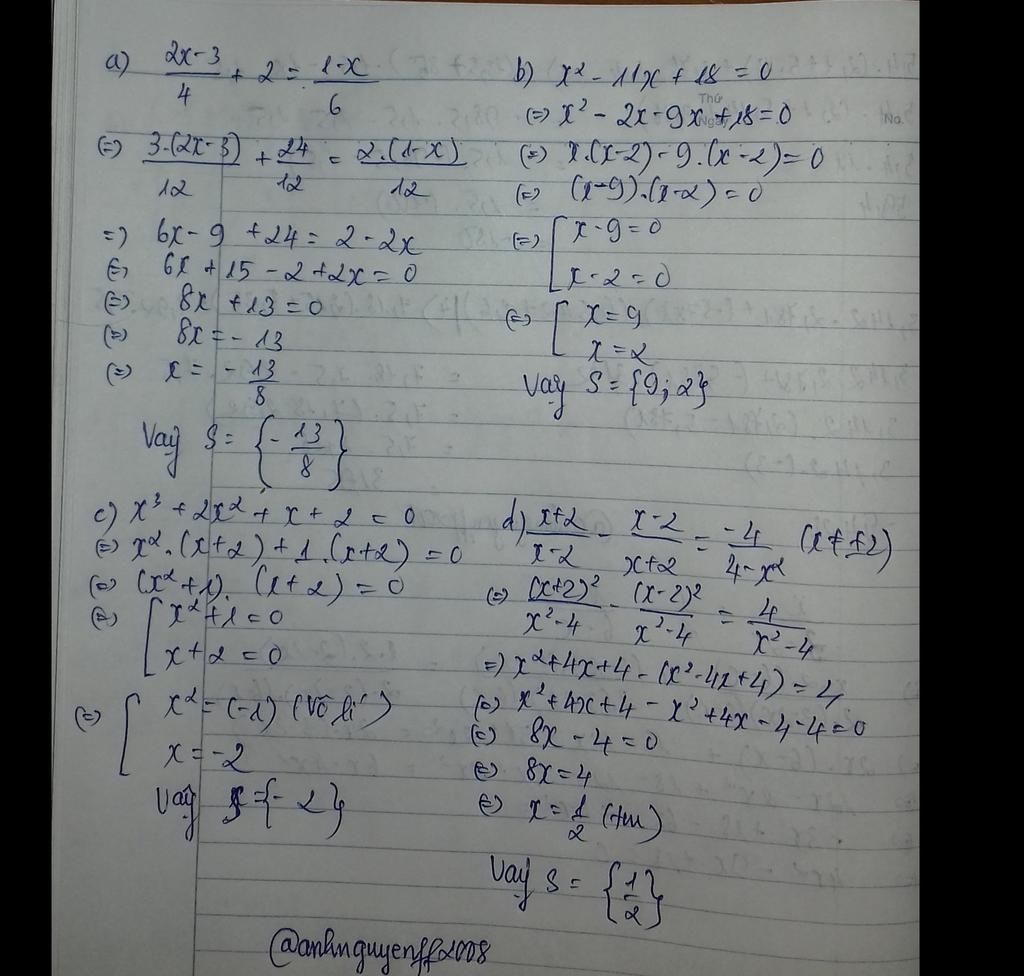 a) (2x-3)/4 + 2 = (1-x)/6
(=) 3.(2x-3)/12 + 24/12 = 2.(1-x)/12
=) 6x-9 +24 = 2-2x
(=) 6x+15-2+2x=0
(=) 8x+13=0
(=) 8x=-13
(=) x= -13/8
Vay S= {-13/8}
b) x² - 11x + 18 = 0
(=) x² - 2x-9x+18=0
(=) x.(x-2)-9.(x-2)=0
(=) (x-9).(x-2)=0
(=) [ x-9=0
x-2=0
(=) [ x=9
x=2
Vay S={9;2}
Thứ
Ngày
No.
c) x³ + 2x² + x + 2 = 0
(=) x².(x+2)+1.(x+2)=0
(=) (x²+1).(x+2)=0
(=) [ x²+1=0
x+2=0
(=) [ x²=(-1) (Vô lí)
x=-2
Vay S={-2}
d) (x+2)/(x-2) - (x-2)/(x+2) = -4/(4-x²) (x≠±2)
(=) (x+2)²/(x²-4) - (x-2)²/(x²-4) = 4/(x²-4)
=) x²+4x+4-(x²-4x+4)=4
(=) x²+4x+4-x²+4x-4-4=0
(=) 8x-4=0
(=) 8x=4
(=) x=1/2 (tm)
Vay S = {1/2}
@anhnguyenff2008